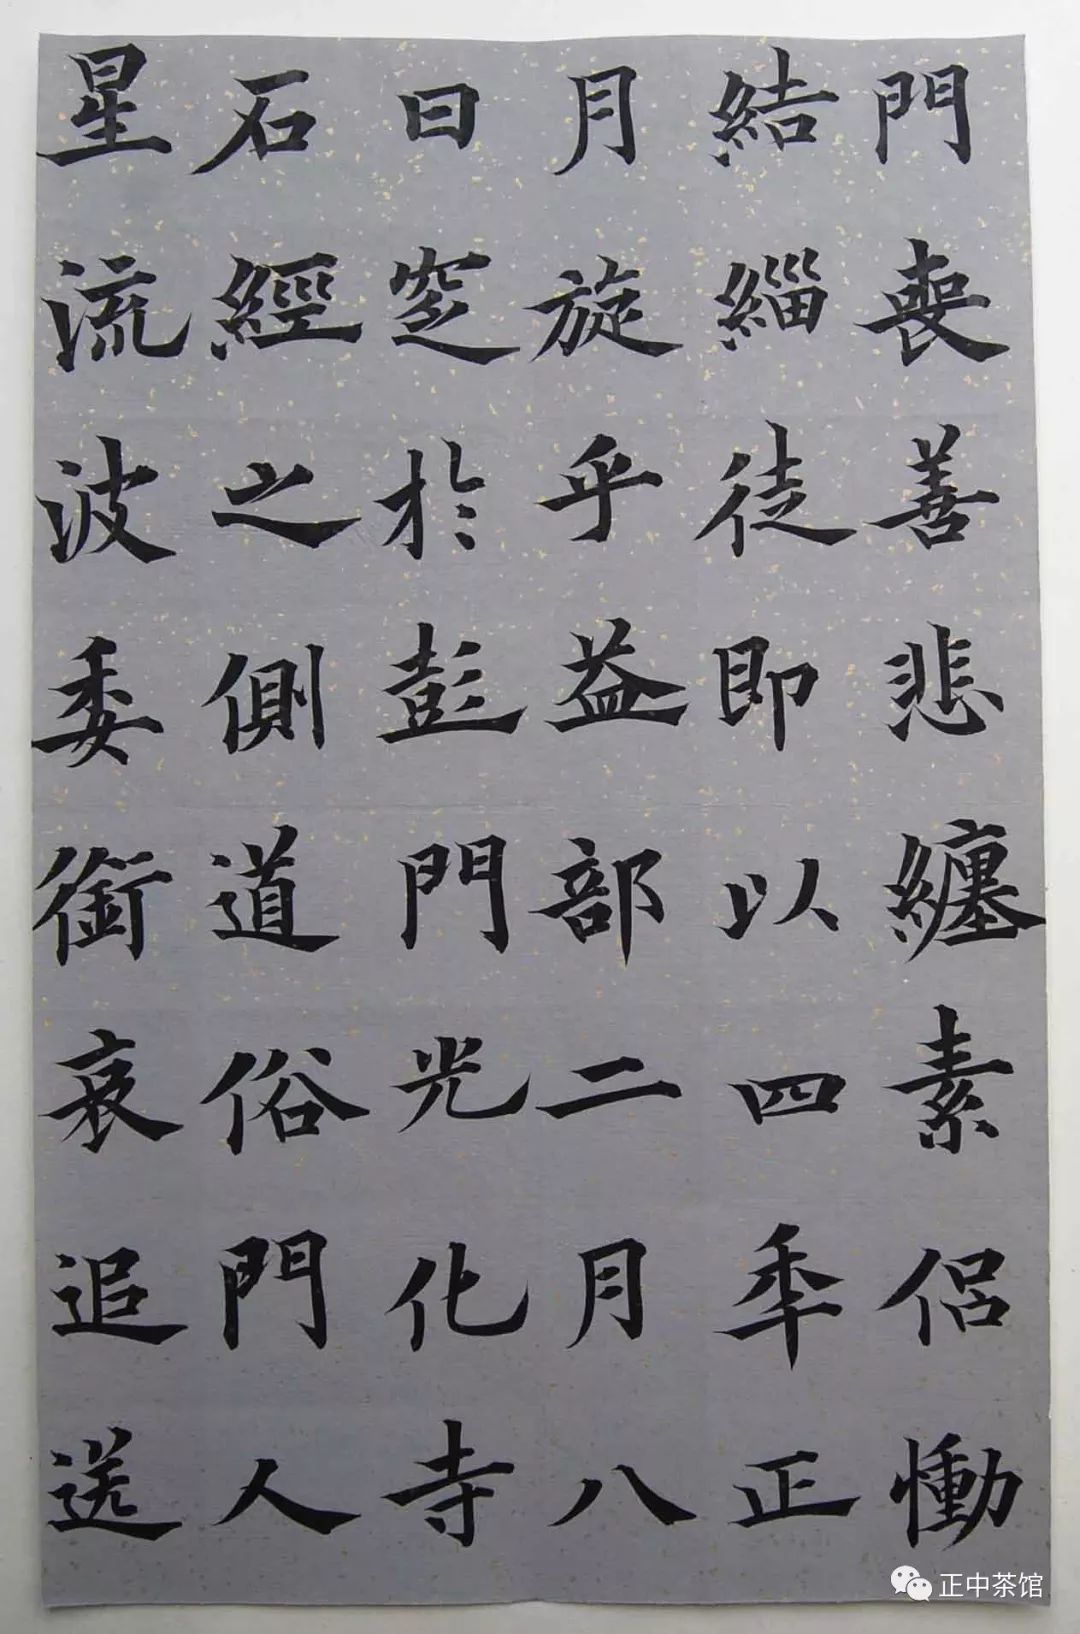 門喪善悲纏素侶慟
結緇徒即以四年正
月旋乎益部二月八
日窆於彭門光化寺
石經之側道俗門人
星流波委銜哀追送
正中茶馆